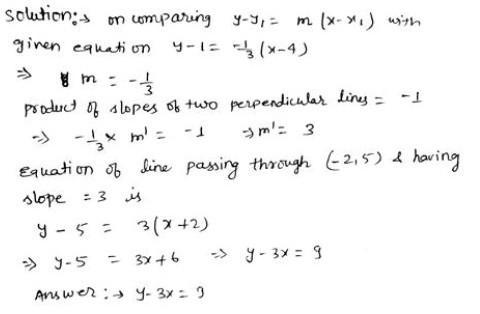 Solution:→ on comparing y-y₁ = m (x-x₁) with
given equation y-1 = -1/3 (x-4)
⇒ m = -1/3
product of slopes of two perpendicular lines = -1
⇒ -1/3 × m' = -1 ⇒ m' = 3
Equation of line passing through (-2,5) & having
slope = 3 is
y - 5 = 3(x+2)
⇒ y-5 = 3x+6 ⇒ y-3x = 11